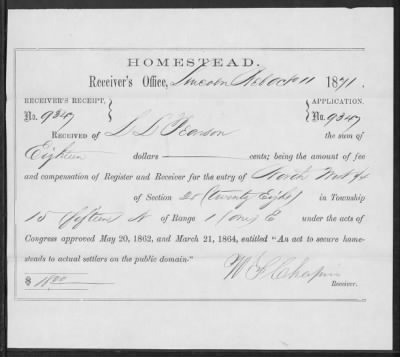 HOMESTEAD.
Receiver's Office, Lincoln Neb Oct 11 1871.
RECEIVER'S RECEIPT, APPLICATION,
No. 9347 No. 9347
RECEIVED OF S D Pearson the sum of
Eighteen dollars cents; being the amount of fee
and compensation of Register and Receiver for the entry of North West 1/4
of Section 28 (twenty Eight) in Township
15 (fifteen) N of Range 1 (one) E under the acts of
Congress approved May 20, 1862, and March 21, 1864, entitled "An act to secure home-
steads to actual settlers on the public domain."
$ 18.00 W S Chapin
Receiver.